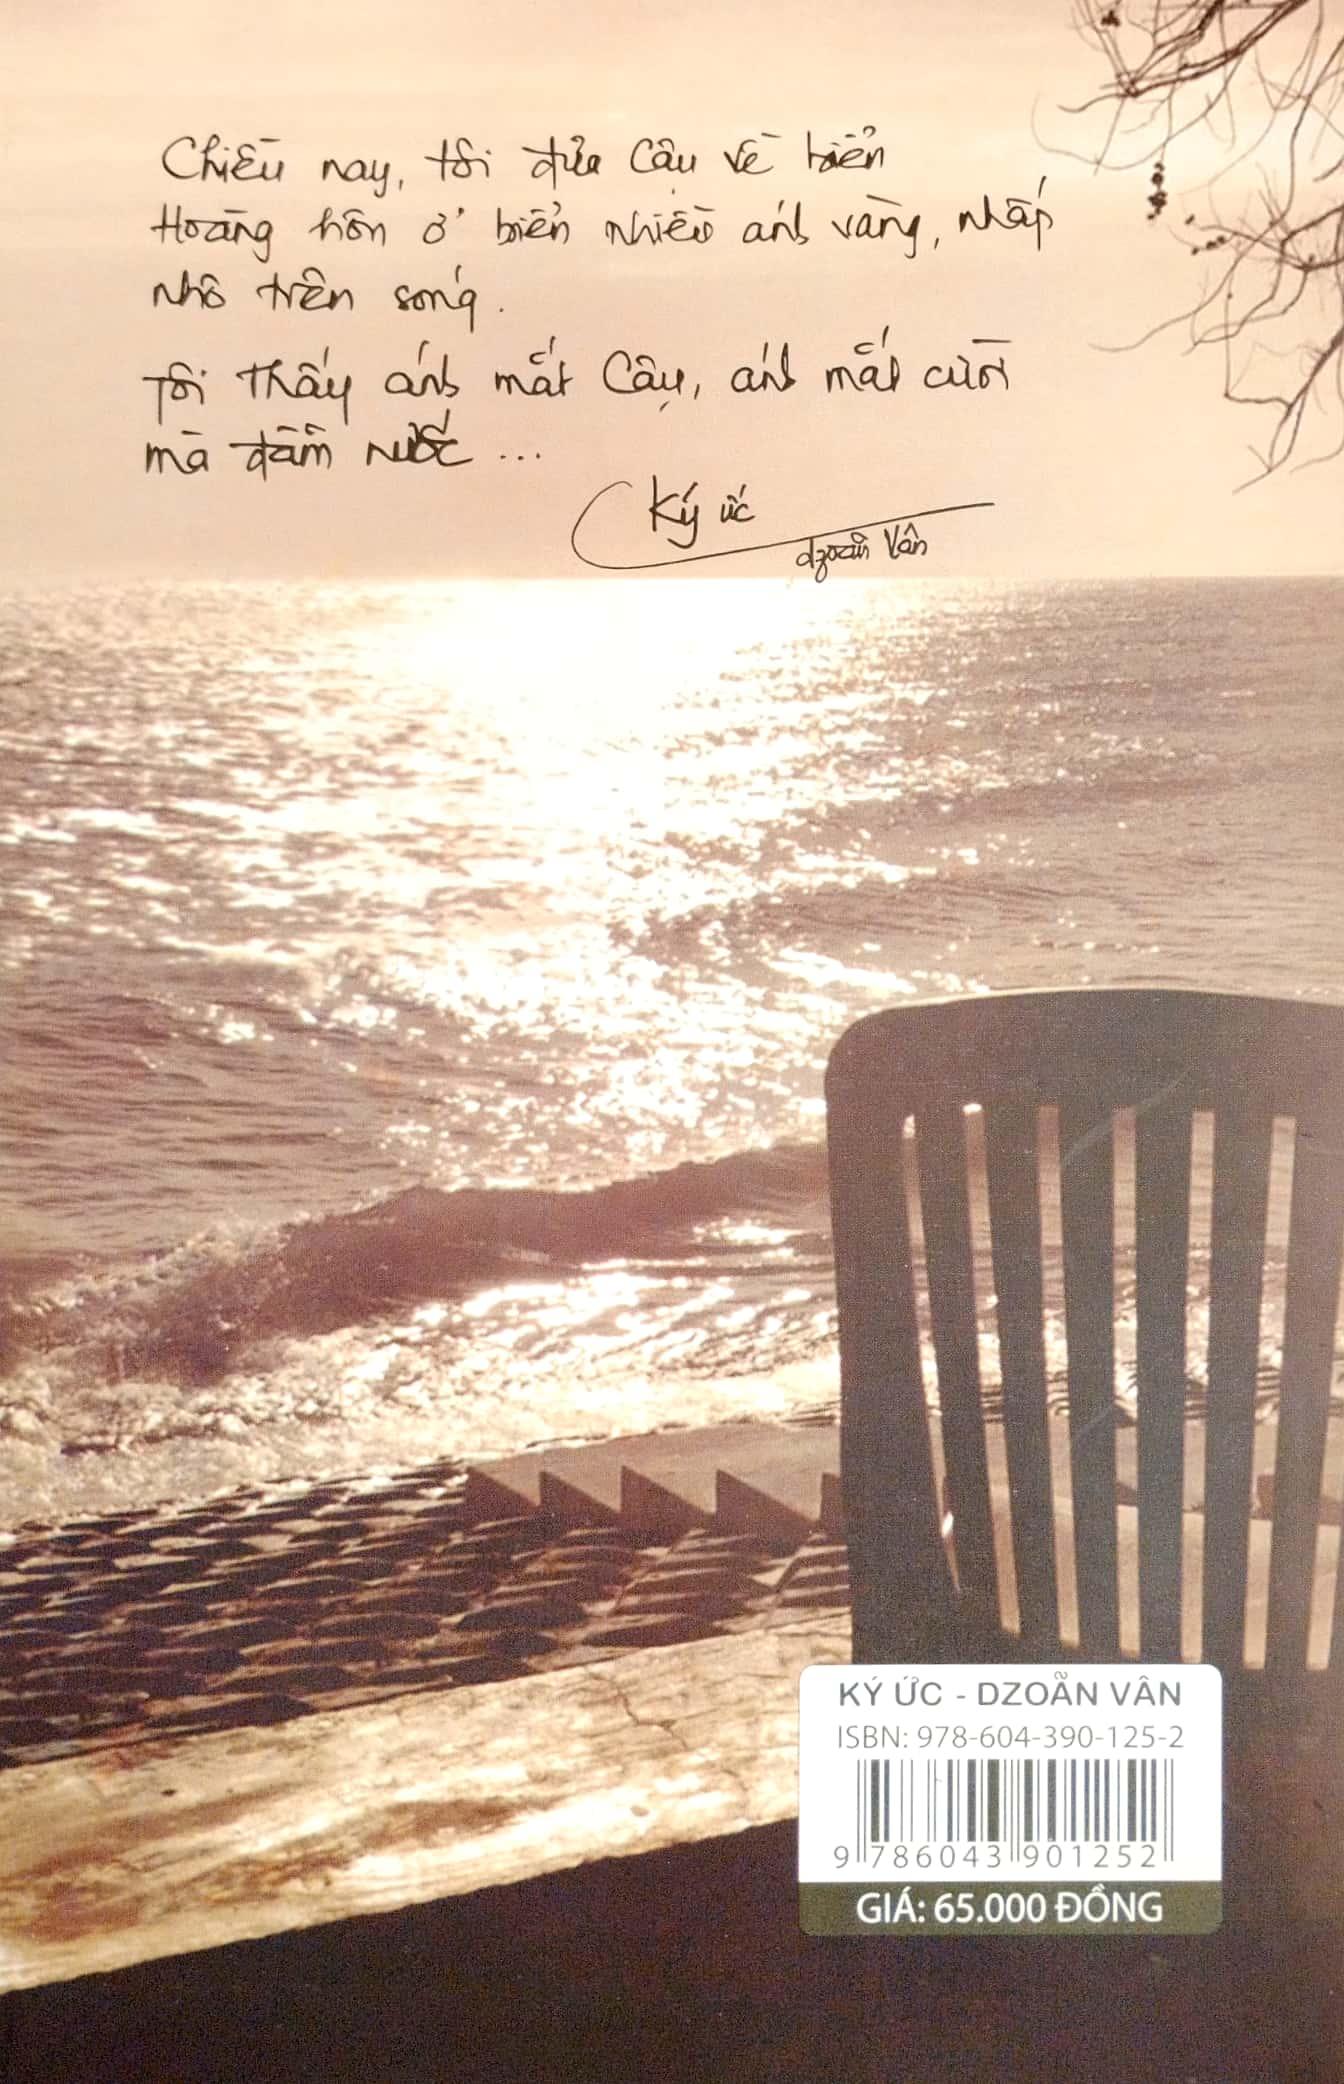 Chiều nay, tôi đưa Cậu về biển
Hoàng hôn ở biển nhiều ánh vàng, nhấp
nhô trên sóng.
Tôi thấy ánh mắt Cậu, ánh mắt cười
mà đẫm nước...
Ký ức
dzoãn Vân
KÝ ỨC - DZOÃN VÂN
ISBN: 978-604-390-125-2
9 786043 901252
GIÁ: 65.000 ĐỒNG